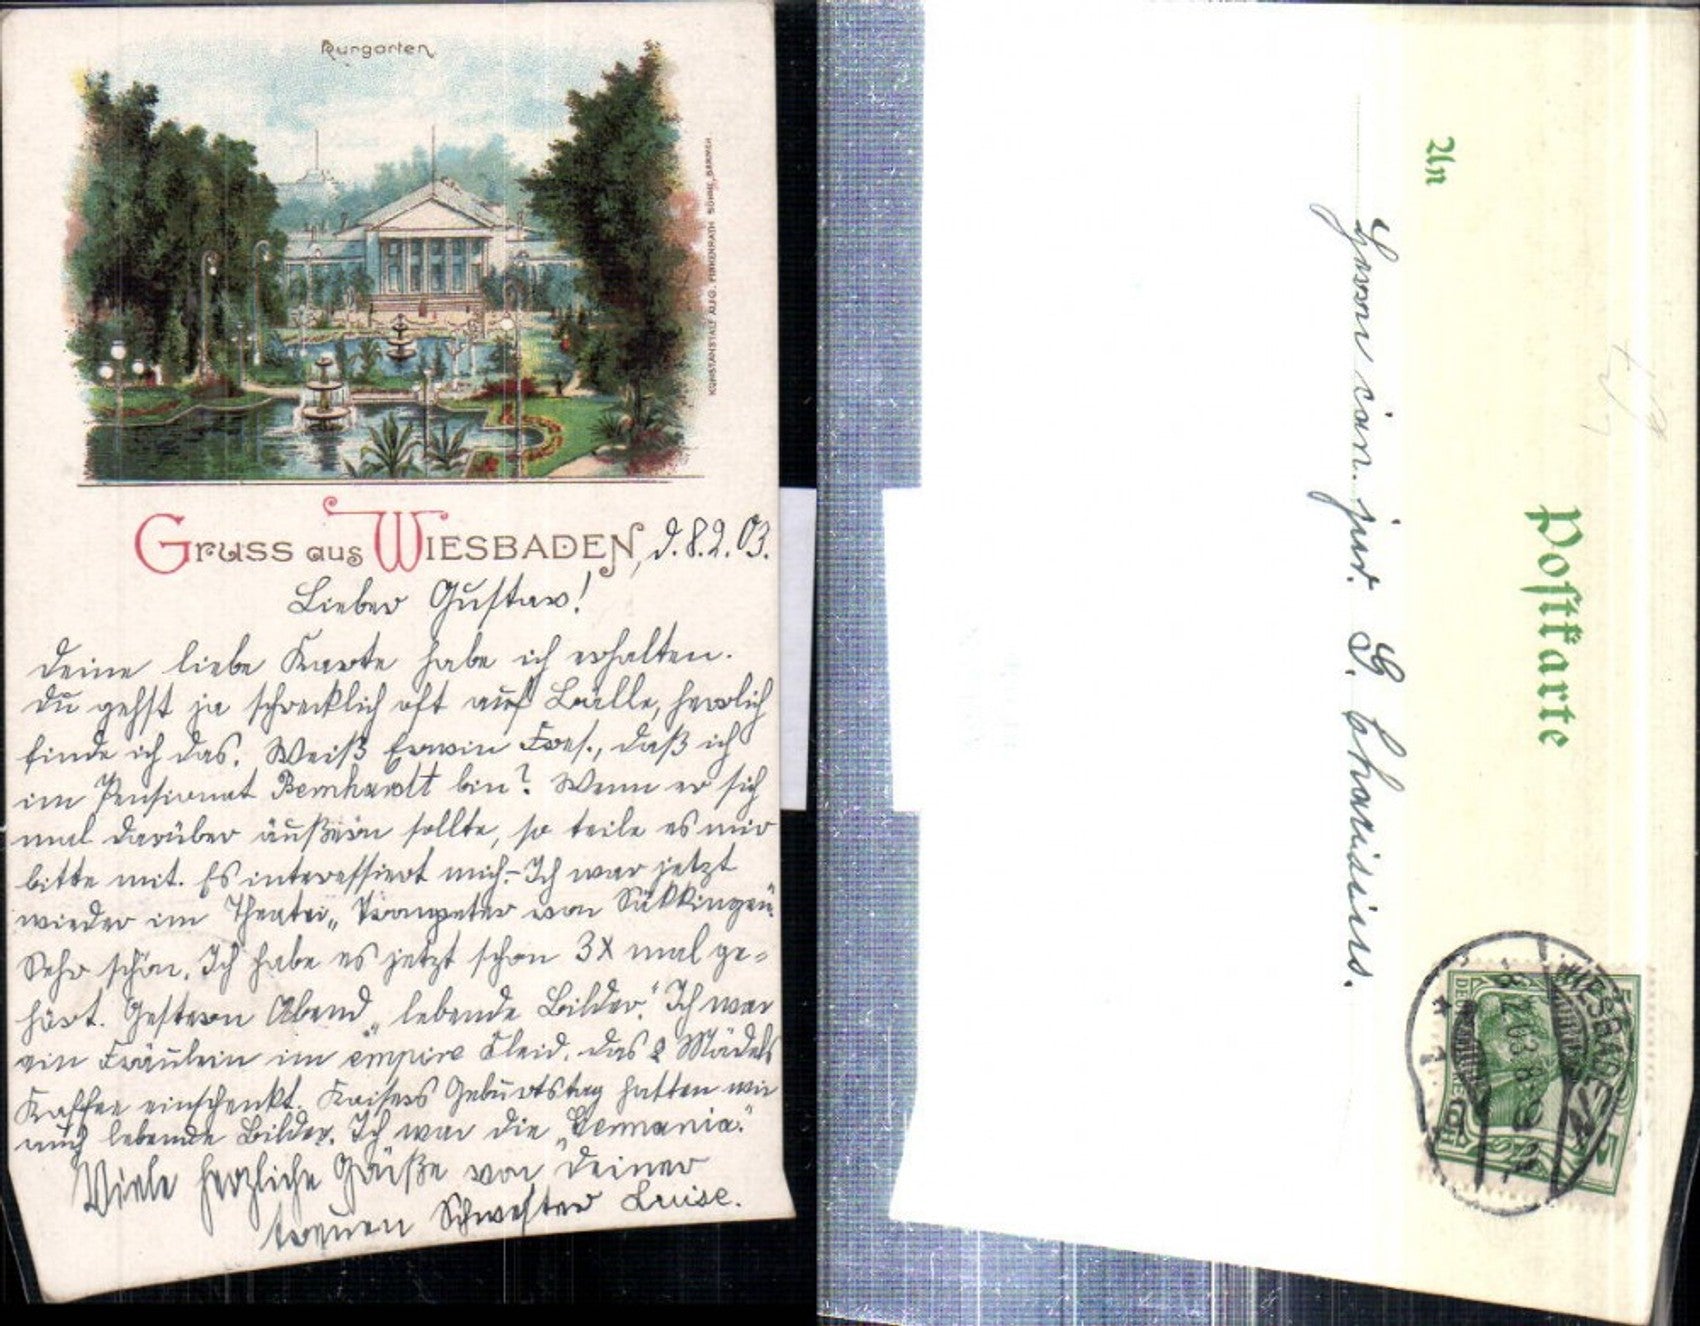 Kurgarten
KUNSTANSTALT AUG. FINKENRATH SÖHNE, BARMEN
GRUSS aus WIESBADEN, d. 8.2.03.
Lieber Gustav!
Deine liebe Karte habe ich erhalten.
Du gehst ja schrecklich oft auf Bälle, herrlich
finde ich das. Weiß Erwin daß ich
im Pensionat Bernhardt bin? Wenn er sich
mal darüber äußern sollte, so teile es mir
bitte mit. Es interessiert mich. - Ich war jetzt
wieder im Theater „Trompeter von Säkkingen"
Sehr schön. Ich habe es jetzt schon 3x mal ge-
hört. Gestern Abend „lebende Bilder." Ich war
ein Fräulein im empire Kleid, das 2 Mädels
Kaffee einschenkt. Kaisers Geburtstag hatten wir
auch lebende Bilder. Ich war die „Germania."
Viele herzliche Grüße von Deiner
treuen Schwester Luise.
An
Postkarte
Herrn can. jur. G. Charisius.
WIESBADEN
8.2.03.8-9N.
* 1